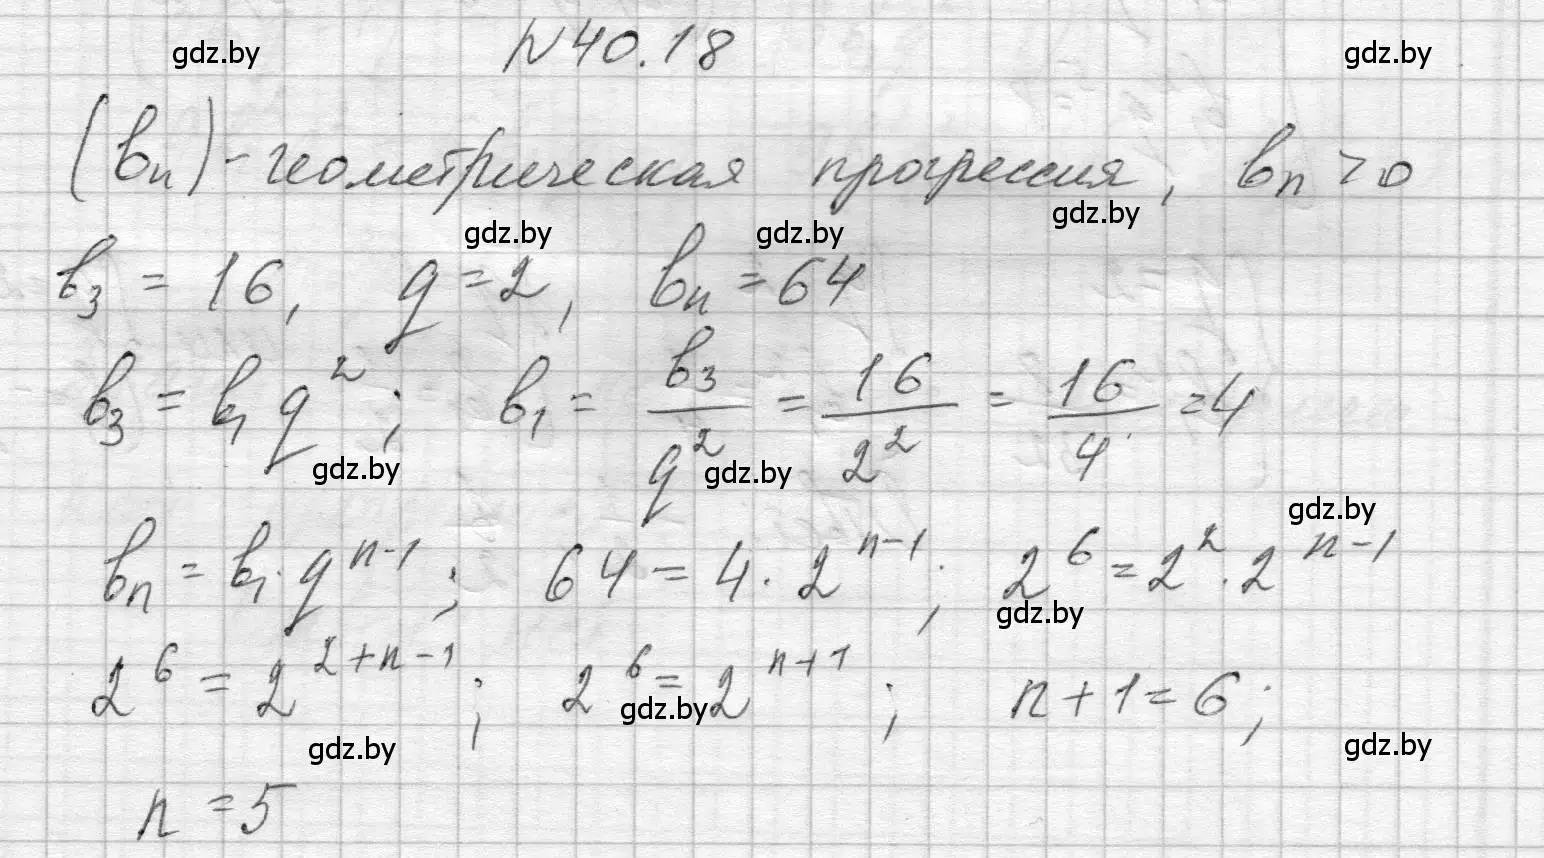 gdz.by №40.18 gdz.by
(bₙ)-геометрическая прогрессия, bₙ > 0
gdz.by gdz.by gdz.by
b₃ = 16, q = 2, bₙ = 64
b₃ = b₁q²; b₁ = b₃/q² = 16/2² = 16/4 = 4
gdz.by gdz.by gdz.by
bₙ = b₁·qⁿ⁻¹; 64 = 4·2ⁿ⁻¹; 2⁶ = 2²·2ⁿ⁻¹
gdz.by
2⁶ = 2²⁺ⁿ⁻¹; 2⁶ = 2ⁿ⁺¹; n+1 = 6;
gdz.by gdz.by gdz.by
n = 5